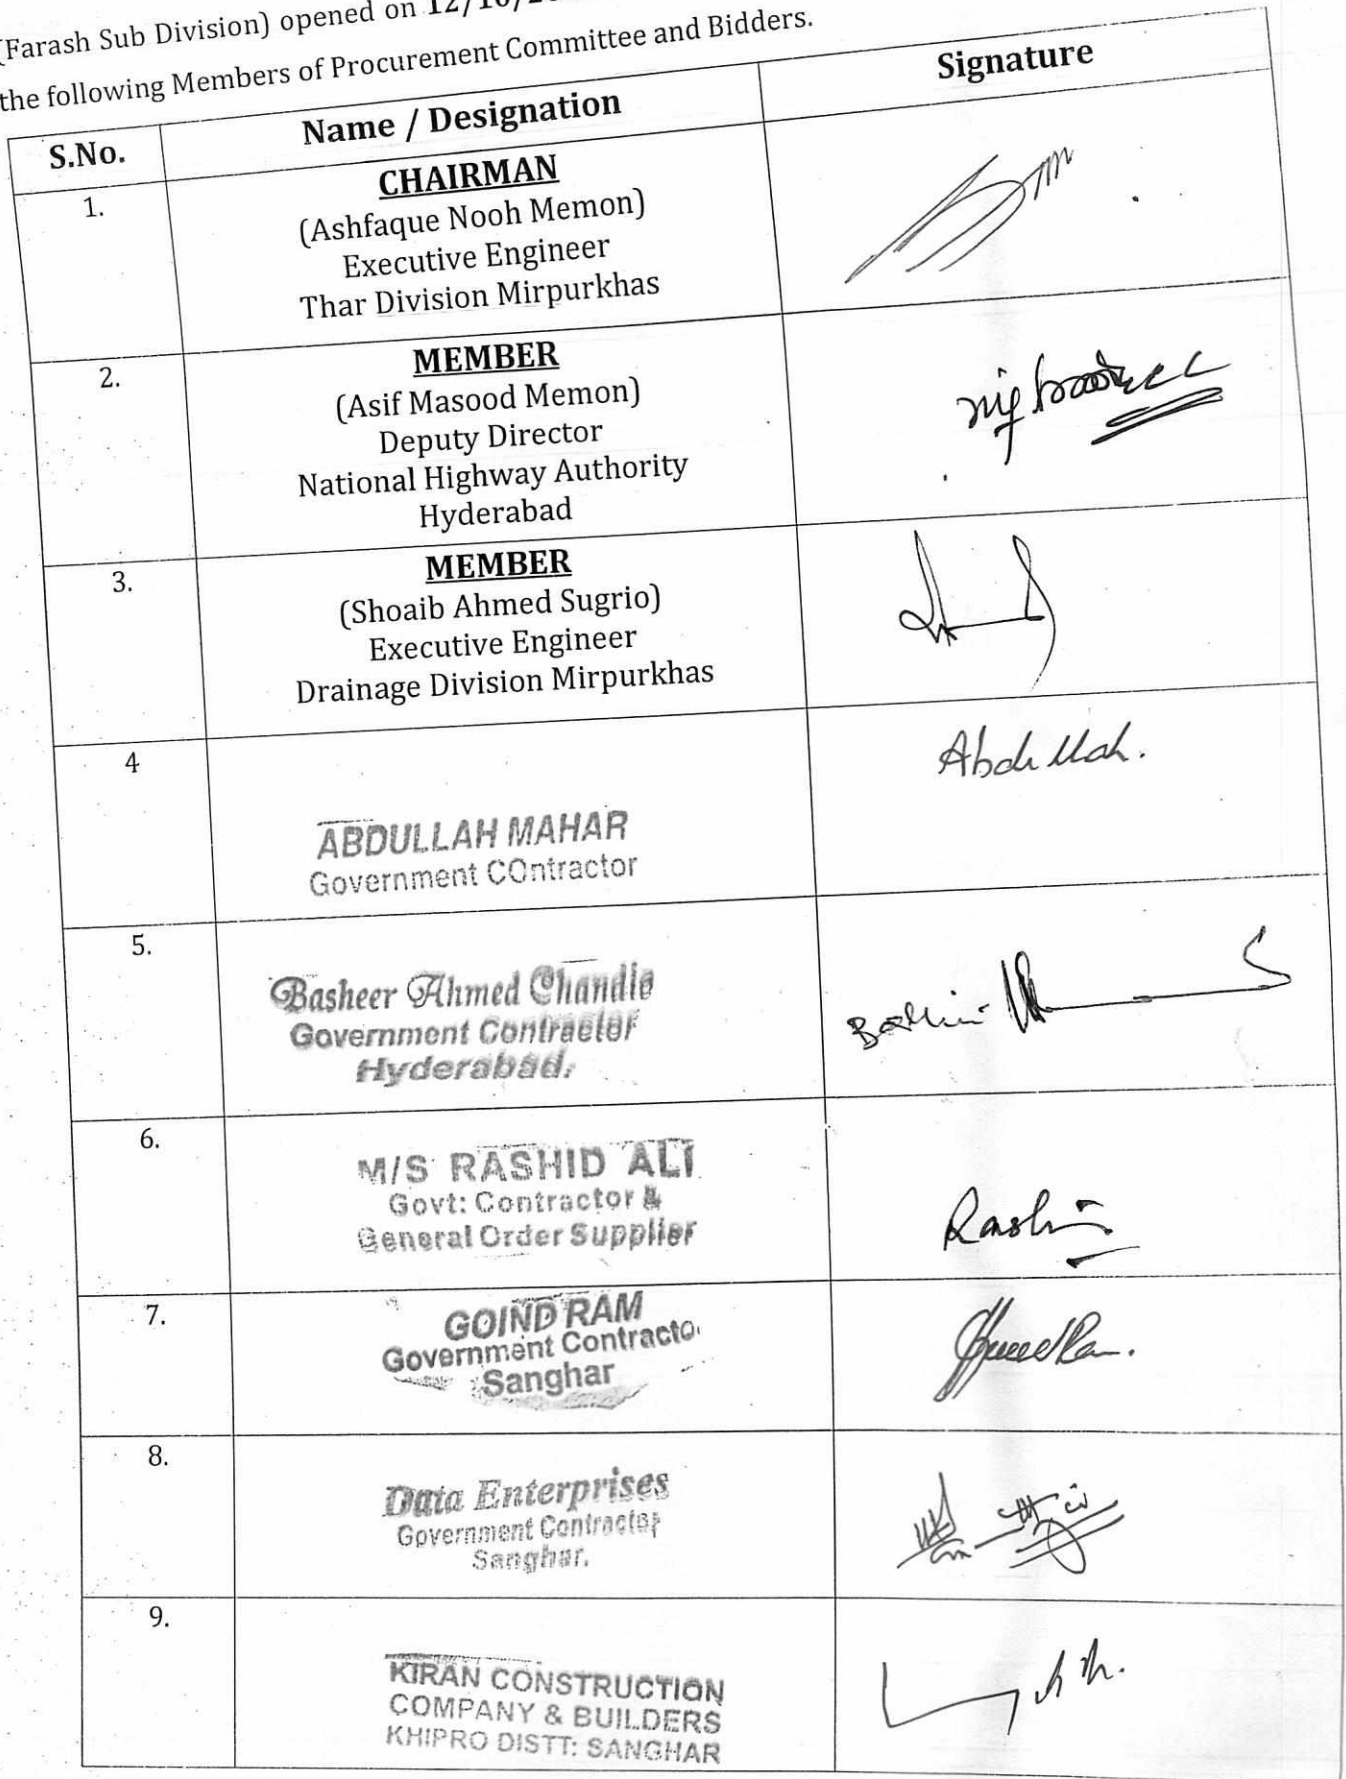 (Farash Sub Division) opened on
the following Members of Procurement Committee and Bidders.
S.No. Name / Designation Signature
1. CHAIRMAN
(Ashfaque Nooh Memon)
Executive Engineer
Thar Division Mirpurkhas
2. MEMBER
(Asif Masood Memon)
Deputy Director
National Highway Authority
Hyderabad
3. MEMBER
(Shoaib Ahmed Sugrio)
Executive Engineer
Drainage Division Mirpurkhas
4 Abdullah.
ABDULLAH MAHAR
Government COntractor
5.
Basheer Ahmed Chandio
Government Contractor
Hyderabad.
6.
M/S RASHID ALI
Govt: Contractor &
General Order Supplier
Rashid
7. GOIND RAM
Government Contracto
Sanghar
8.
Data Enterprises
Government Contractor
Sanghar.
9.
KIRAN CONSTRUCTION
COMPANY & BUILDERS
KHIPRO DISTT: SANGHAR